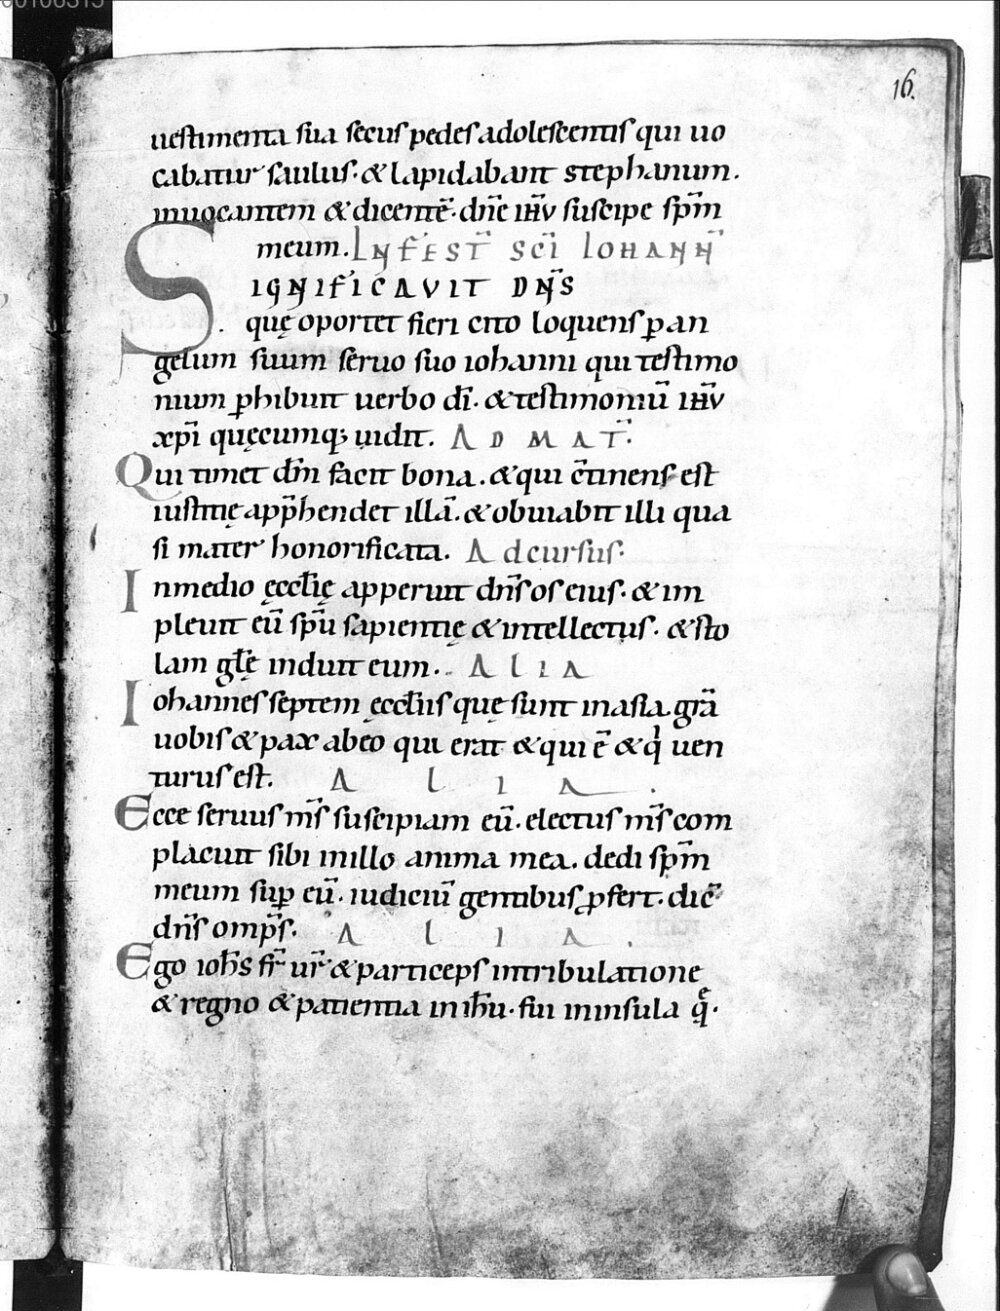 00106315
16.
uestimenta sua secus pedes adolescentis qui uo
cabatur saulus. & lapidabant stephanum.
inuocantem & dicentē. dn̄e ih̄v suscipe sp̄m
meum. IN FEST̄ SC̄I IOHANN̄
SIGNIFICAVIT DN̄S
quę oportet fieri cito loquens ꝑ an
gelum suum seruo suo iohanni qui testimo
nium ꝑhibuit uerbo dī. & testimoniū ih̄v
xp̄i quęcumq; uidit. AD MAT̄.
Qui timet dm̄ facit bona. & qui c̄tinens est
iustitię app̄hendet illā. & obuiabit illi qua
si mater honorificata. Ad cursus.
In medio ęccl̄ię apperuit dn̄s os eius. & im
pleuit eū sp̄u sapientię & intellectus. & sto
lam gl̄ę induit eum. ALIA
Iohannes septem ęccl̄iis quę sunt in asia. grā
uobis & pax ab eo qui erat & qui ē & q̇ uen
turus est. ALIA.
Ecce seruus m̄s suscipiam eū. electus m̄s com
placuit sibi in illo anima mea. dedi sp̄m
meum suꝑ eū. iudiciū gentibus ꝓfert. dic̄
dn̄s omp̄s. ALIA.
Ego ioh̄s fr̄ ur̄ & particeps in tribulatione
& regno & patientia in ih̄u. fui in insula q̄.